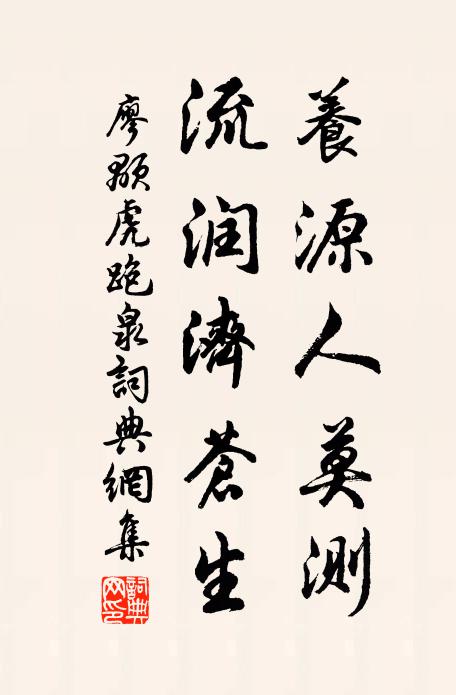 養源人莫測
流润濟蒼生
廖顒虎跑泉詞典網集
詞典网印